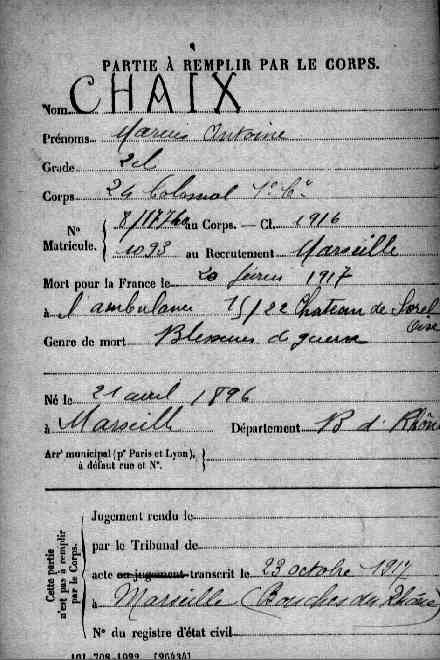 PARTIE À REMPLIR PAR LE CORPS.
Nom CHAIX
Prénoms Marius Antoine
Grade 2cl
Corps 24 Colonial 1e Cie
N° Matricule. { 8/17760 au Corps. — Cl. 1916
1093 au Recrutement Marseille
Mort pour la France le 20 février 1917
à l'ambulance 15/22 Chateau de Sorel Oise
Genre de mort Blessures de guerre
Né le 21 avril 1896
à Marseille Département B d. Rhône
Arrt municipal (pr Paris et Lyon), à défaut rue et N°. }
Cette partie n'est pas à remplir par le Corps.
Jugement rendu le
par le Tribunal de
acte ou jugement transcrit le 23 octobre 1917
à Marseille (Bouches du Rhône)
N° du registre d'état civil
101-708-1922. [26434]